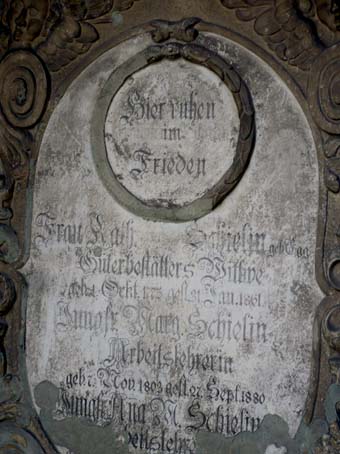 Hier ruhen
im
Frieden
Frau Kath. Schielin geb. Egg
Güterbestätters Wittwe
geb. 1. Okt. 1773 gest. 31. Jan. 1861.
Jungfr. Marg. Schielin
Arbeitslehrerin
geb. 7. Nov. 1803 gest. 27. Sept. 1880
Jungfr. Ana M. Schielin